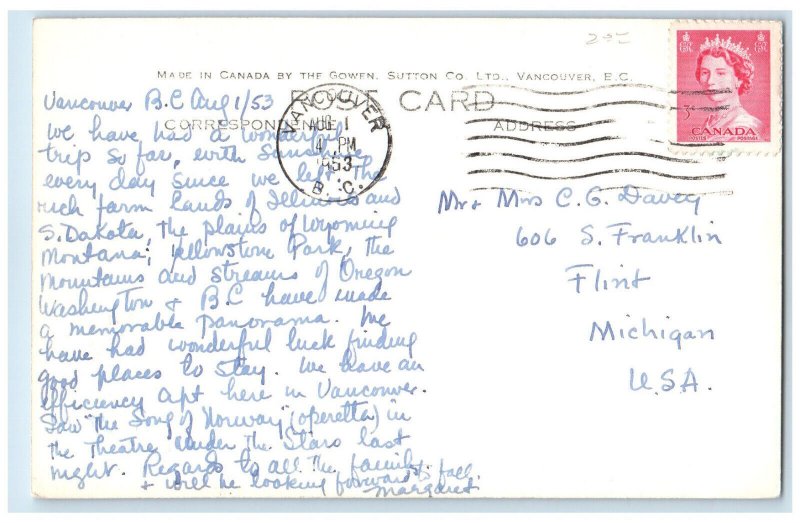 205
MADE IN CANADA BY THE GOWEN, SUTTON CO. LTD., VANCOUVER, B.C.
POST CARD
CORRESPONDENCE
ADDRESS
VANCOUVER
AUG 1
4 PM
1953
B. C.
3¢
CANADA
POSTES POSTAGE
Vancouver B.C Aug 1/53
We have had a wonderful
trip so far, with sunshine
every day since we left the
rich farm lands of Illinois and
S. Dakota, the plains of Wyoming
Montana; Yellowstone Park, the
mountains and streams of Oregon
Washington & B.C have made
a memorable panorama. We
have had wonderful luck finding
good places to stay. We have an
efficiency apt here in Vancouver.
Saw "the Song of Norway" (operetta) in
the Theatre under the Stars last
night. Regards to all the family
& will be looking forward to fall.
Margaret
Mr & Mrs C. G. Davey
606 S. Franklin
Flint
Michigan
U.S.A.